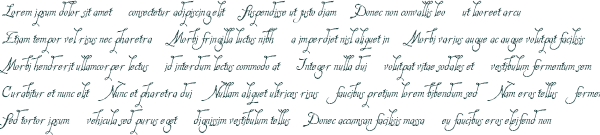 Lorem ipsum dolor sit amet consectetur adipiscing elit Suspendisse ut justo diam Donec non convallis leo ut laoreet arcu
Etiam tempor vel risus nec pharetra Morbi fringilla luctus nibh a imperdiet nisl aliquet in Morbi varius augue ac augue volutpat facilisis
Morbi hendrerit ullamcorper lectus id interdum lectus commodo at Integer nulla dui volutpat vitae sodales et vestibulum fermentum sem
Curabitur et nunc elit Nunc et pharetra dui Nullam aliquet ultricies risus faucibus pretium lorem bibendum sed Nam eros tellus fermen
Sed tortor ipsum vehicula sed purus eget dignissim vestibulum tellus Donec accumsan facilisis massa eu faucibus eros eleifend non